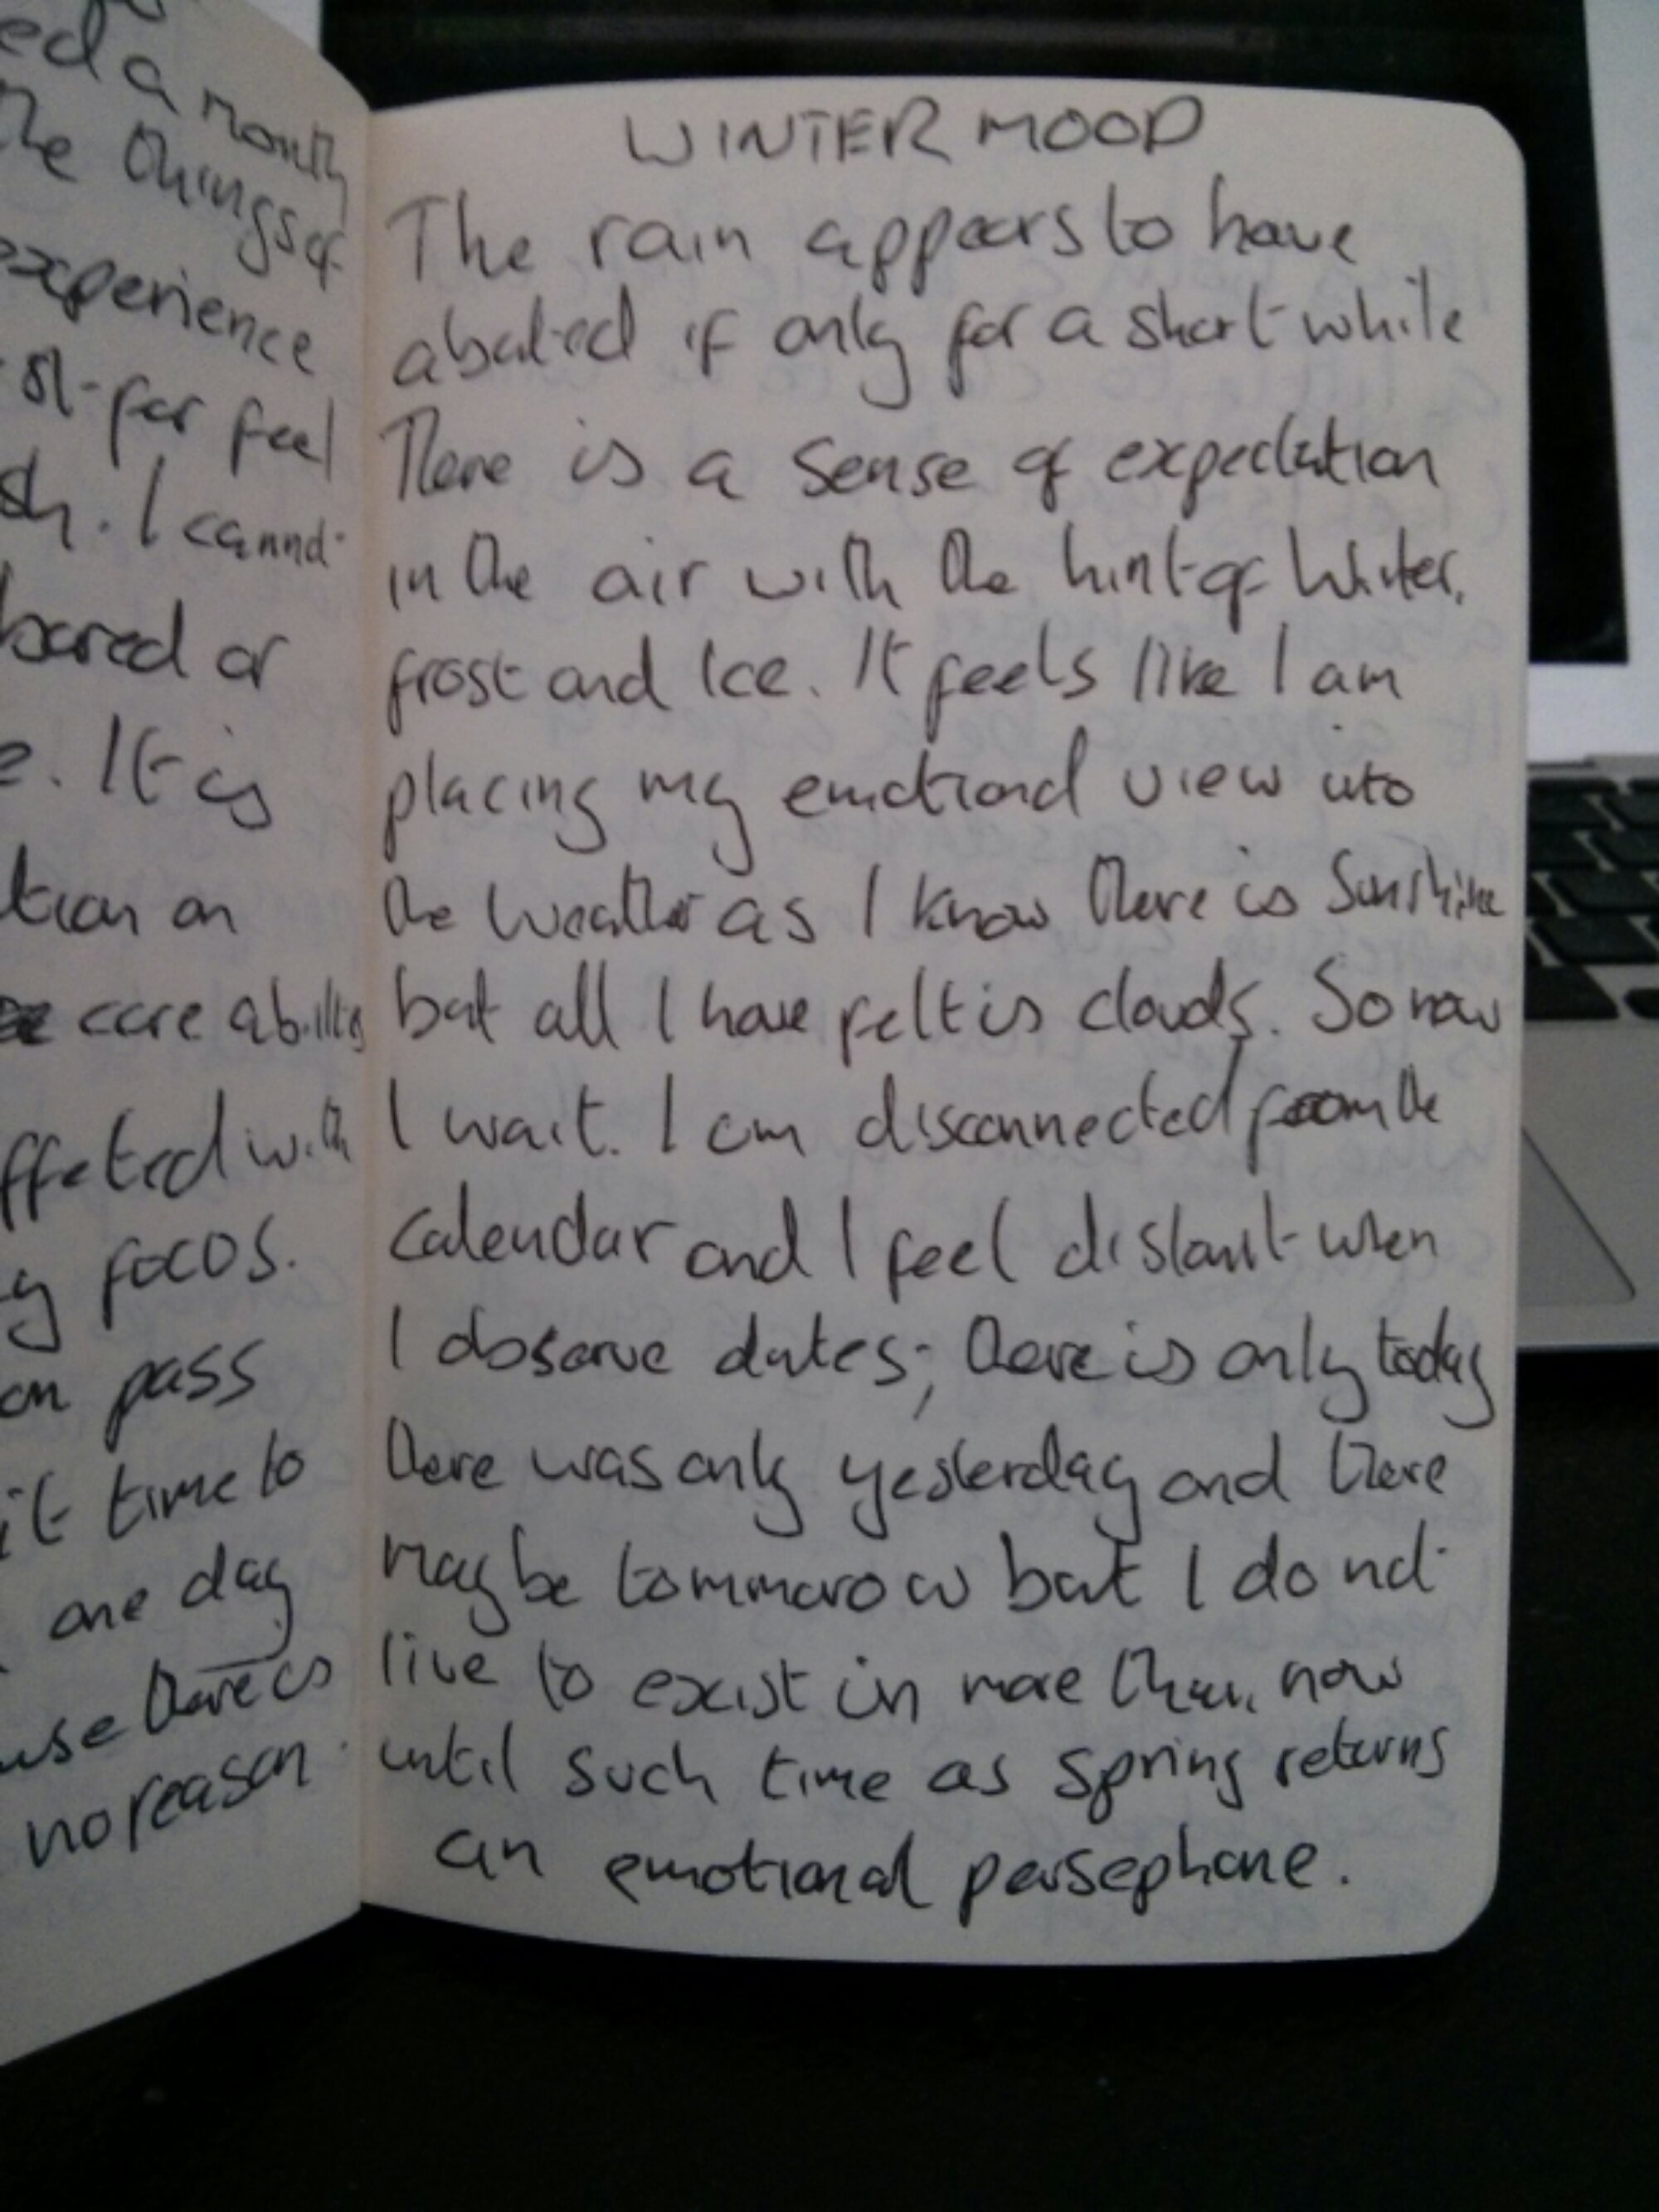 ed a month
the things of
experience
st for feel
sh. I cannot
bored or
e. It is
tion on
core ability
ffected with
y focos.
on pass
it time to
one day
use there is
no reason.
WINTER MOOD
The rain appears to have
abated if only for a short while
There is a sense of expectation
in the air with the hint of Winter,
frost and Ice. It feels like I am
placing my emotional view into
the weather as I know there is Sunshine
but all I have felt is clouds. So now
I wait. I am disconnected from the
calendar and I feel distant when
I observe dates; there is only today
there was only yesterday and there
may be tommorow but I do not
live to exist in more than now
until such time as spring returns
an emotional persephone.